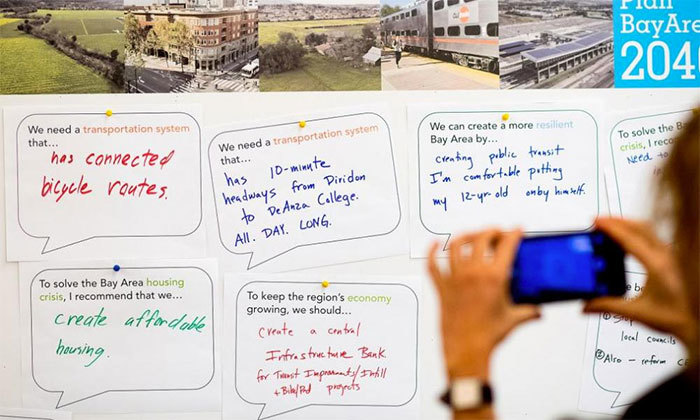 Plan
BayArea
204
We need a transportation system
that...
has connected
bicycle routes.
We need a transportation system
that...
has 10-minute
headways from Diridon
to DeAnza College.
All. DAY. LONG.
We can create a more resilient
Bay Area by...
creating public transit
I'm comfortable putting
my 12-yr-old on by himself.
To solve the
crisis, I reco
Need to
To solve the Bay Area housing
crisis, I recommend that we...
create affordable
housing.
To keep the region's economy
growing, we should...
Create a central
Infrastructure Bank.
for Transit Improvements/Infill
+ Bike/Ped projects
① Stop
local councils
② Also - reform CE